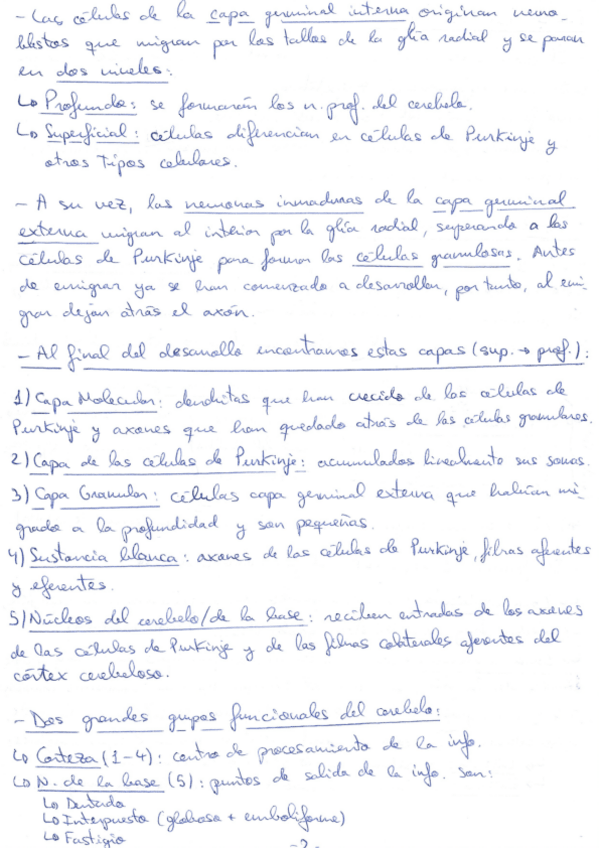 - Las células de la capa germinal interna originan neuro-
blastos que migran por los tallos de la glía radial y se paran
en dos niveles:
↳ Profundo: se formarán los n. prof. del cerebelo.
↳ Superficial: células diferencian en células de Purkinje y
otros tipos celulares.
- A su vez, las neuronas inmaduras de la capa germinal
externa migran al interior por la glía radial, superando a las
células de Purkinje para formar las células granulosas. Antes
de emigrar ya se han comenzado a desarrollar, por tanto, al emi-
grar dejan atrás el axón.
- Al final del desarrollo encontramos estas capas (sup. → prof.):
1) Capa Molecular: dendritas que han crecido de las células de
Purkinje y axones que han quedado atrás de las células granulares.
2) Capa de las células de Purkinje: acumulados linealmente sus somas.
3) Capa Granular: células capa germinal externa que habían mi-
grado a la profundidad y son pequeñas.
4) Sustancia blanca: axones de las células de Purkinje, fibras aferentes
y eferentes.
5) Núcleos del cerebelo/de la base: reciben entradas de los axones
de las células de Purkinje y de las fibras colaterales aferentes del
córtex cerebeloso.
- Dos grandes grupos funcionales del cerebelo:
↳ Corteza (1-4): centro de procesamiento de la info.
↳ N. de la base (5): puntos de salida de la info. Son:
↳ Dentado
↳ Interpuesto (globoso + emboliforme)
↳ Fastigio
-2-